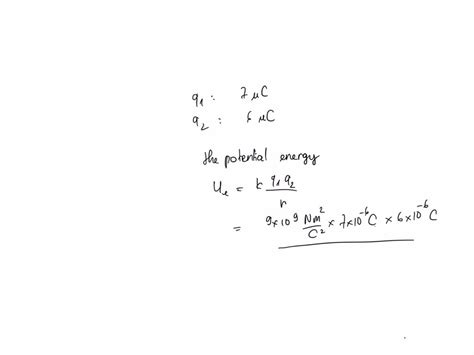 q1 : 7 μC
q2 : 6 μC
the potential energy
Ue = k q1 q2 / r
= 9×10^9 Nm^2/C^2 × 7×10^-6 C × 6×10^-6 C